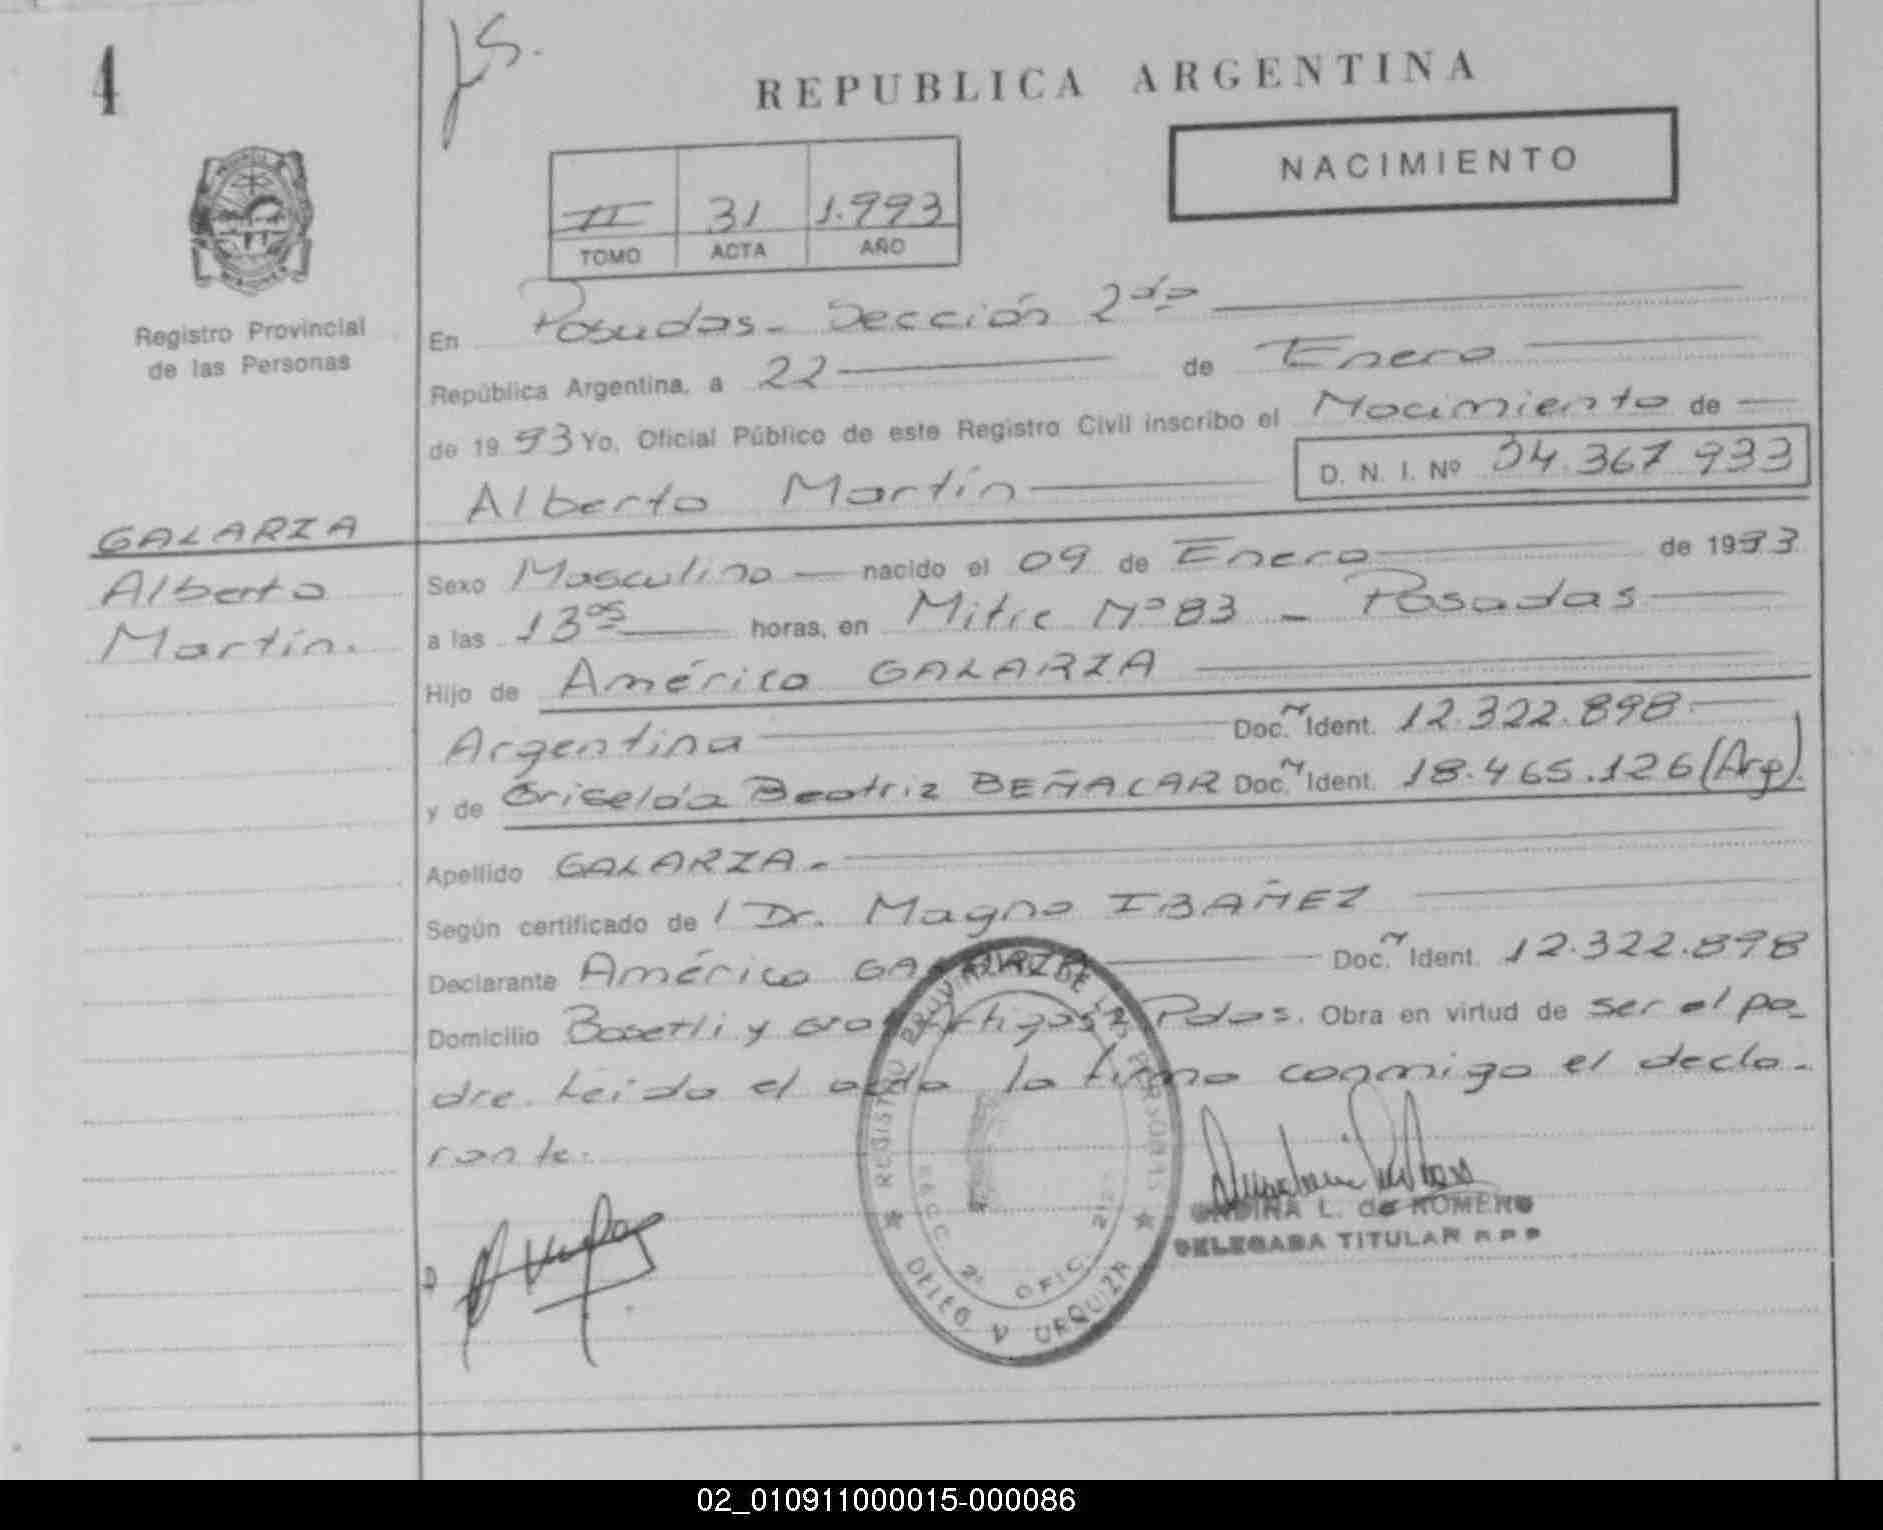 4
JS.
REPUBLICA ARGENTINA
NACIMIENTO
II 31 1.993
TOMO ACTA AÑO
Registro Provincial
de las Personas
En Posadas - Sección 2da
República Argentina, a 22 de Enero
de 1993 Yo, Oficial Público de este Registro Civil inscribo el Nacimiento de
D. N. I. Nº 34.367.933
Alberto Martín
GALARZA
Alberto
Martín.
Sexo Masculino nacido el 09 de Enero de 1993
a las 13 05 horas, en Mitre Nº 83 - Posadas
Hijo de Américo GALARZA
Argentina Doc. Ident. 12.322.898
y de Griselda Beatriz BEÑACAR Doc. Ident. 18.465.126 (Arg).
Apellido GALARZA.-
Según certificado de l Dr. Magno IBAÑEZ
Declarante Américo GALARZA Doc. Ident. 12.322.898
Domicilio Bosetti y Gral Artigas Pdas. Obra en virtud de ser el pa-
dre. Leido el acta la firma conmigo el decla-
rante.
REGISTRO PROVINCIAL DE LAS PERSONAS
SECC. 2ª OFIC.
DELEG. V. URQUIZA
ONDINA L. de ROMERO
DELEGADA TITULAR R P P
02_010911000015-000086